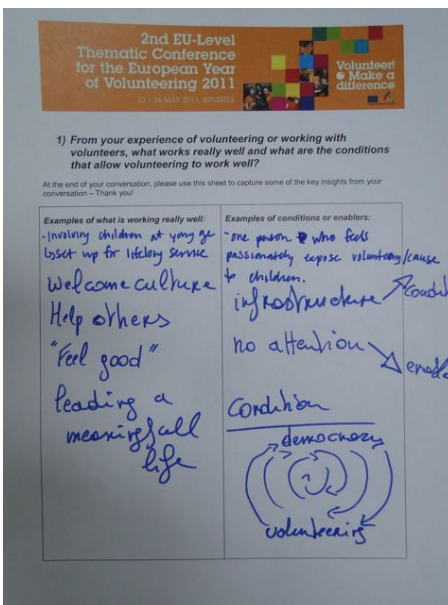 2nd EU-Level
Thematic Conference
for the European Year
of Volunteering 2011
23 - 24 MAY 2011, BRUSSELS
Volunteer!
Make a
difference
1) From your experience of volunteering or working with
volunteers, what works really well and what are the conditions
that allow volunteering to work well?
At the end of your conversation, please use this sheet to capture some of the key insights from your
conversation – Thank you!
Examples of what is working really well:
- Involving children at yong ge
set up for lifelong service
Welcome culture
Help others
"Feel good"
leading a
meaningfull
life
Examples of conditions or enablers:
- one person who feels
passionately expose volunteering/cause
to children.
infrastructure
condit
no attention
enabl
Condition
democracy
volunteering